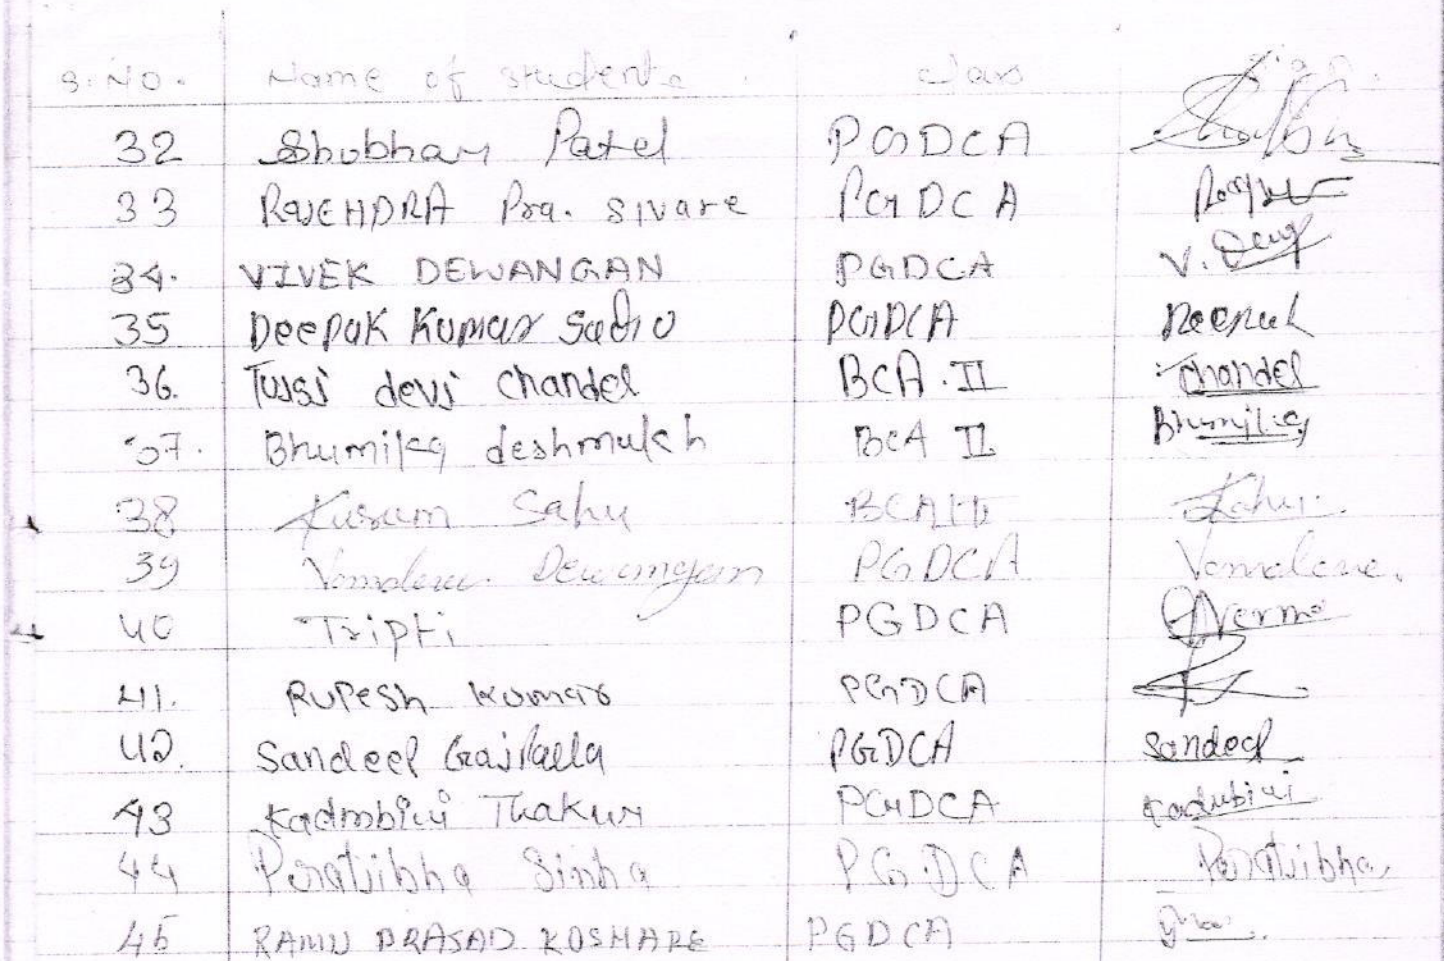 S.No. Name of students class Sign.
32 Shubham Patel PGDCA
33 RAJEHDRA Pra. Sivare PGDCA
34. VIVEK DEWANGAN PGDCA V. Dewg
35 Deepak Kumar Sahu PGDCA Deepak
36. Tulsi devi Chandel BCA. II Chandel
37. Bhumika deshmukh BCA II Bhumika
38 Kusum Sahu BCA II
39 Dewangan PGDCA
40 Tripti PGDCA Verma
41. Rupesh Kumar PGDCA
42. Sandeep PGDCA Sandeep
43 Kadmbini Thakur PGDCA Kadubini
44 Peratibha Sinha PGDCA Peratibha
45 RAMU PRASAD KOSHARE PGDCA